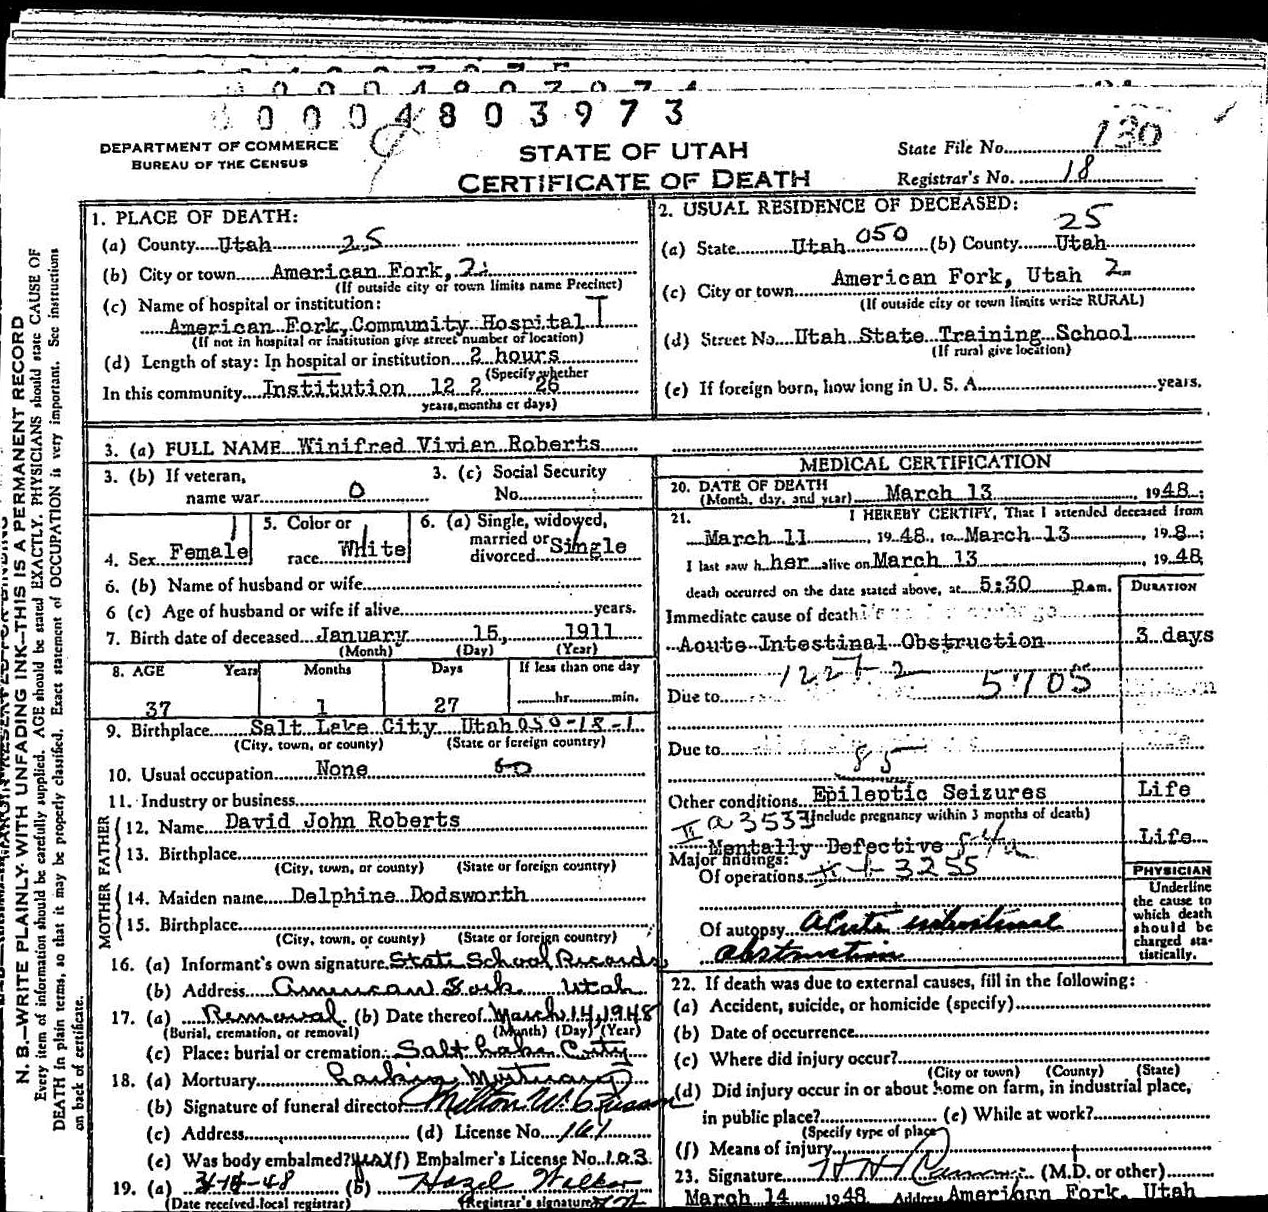 0 0 0 4 8 0 3 9 7 3
DEPARTMENT OF COMMERCE
BUREAU OF THE CENSUS
STATE OF UTAH
CERTIFICATE OF DEATH
State File No. 130
Registrar's No. 18
N. B.—WRITE PLAINLY, WITH UNFADING INK—THIS IS A PERMANENT RECORD
Every item of information should be carefully supplied. AGE should be stated EXACTLY. PHYSICIANS should state CAUSE OF
DEATH in plain terms, so that it may be properly classified. Exact statement of OCCUPATION is very important. See instructions
on back of certificate.
1. PLACE OF DEATH:
(a) County Utah 25
(b) City or town American Fork, 2
(If outside city or town limits name Precinct)
(c) Name of hospital or institution:
American Fork, Community Hospital I
(If not in hospital or institution give street number of location)
(d) Length of stay: In hospital or institution 2 hours
(Specify whether
In this community Institution 12 2 26
years, months or days)
2. USUAL RESIDENCE OF DECEASED:
25
(a) State Utah 050 (b) County Utah
American Fork, Utah 2
(c) City or town
(If outside city or town limits write RURAL)
(d) Street No. Utah State Training School
(If rural give location)
(e) If foreign born, how long in U. S. A. years.
3. (a) FULL NAME Winifred Vivian Roberts
3. (b) If veteran, name war 0
3. (c) Social Security No.
4. Sex Female
5. Color or race White
6. (a) Single, widowed, married or divorced Single
6. (b) Name of husband or wife
6 (c) Age of husband or wife if alive years.
7. Birth date of deceased January 15, 1911
(Month) (Day) (Year)
8. AGE Years Months Days If less than one day
37 1 27 hr. min.
9. Birthplace Salt Lake City Utah 050-18-1
(City, town, or county) (State or foreign country)
10. Usual occupation None
11. Industry or business
FATHER
12. Name David John Roberts
13. Birthplace
(City, town, or county) (State or foreign country)
MOTHER
14. Maiden name Delphine Dodsworth
15. Birthplace
(City, town, or county) (State or foreign country)
16. (a) Informant's own signature State School Records
(b) Address American Fork Utah
17. (a) Removal (b) Date thereof March 14, 1948
(Burial, cremation, or removal) (Month) (Day) (Year)
(c) Place: burial or cremation Salt Lake City
18. (a) Mortuary Larkin Mortuary
(b) Signature of funeral director Milton W.
(c) Address (d) License No. 161
(e) Was body embalmed? yes (f) Embalmer's License No. 103
19. (a) 48 (b) Hazel Walker
(Date received local registrar) (Registrar's signature)
MEDICAL CERTIFICATION
20. DATE OF DEATH
(Month, day, and year) March 13, 1948
21. I HEREBY CERTIFY, That I attended deceased from
March 11, 1948, to March 13, 19 8
I last saw h her alive on March 13, 1948
death occurred on the date stated above, at 5:30 p.m. DURATION
Immediate cause of death
Acute Intestinal Obstruction 3 days
122 2
Due to 5705
Due to
85
Other conditions Epileptic Seizures Life
(Include pregnancy within 3 months of death)
a 3533
Mentally Defective Life
Major findings:
Of operations 3255
Of autopsy Acute intestinal
obstruction
PHYSICIAN
Underline
the cause to
which death
should be
charged sta-
tistically.
22. If death was due to external causes, fill in the following:
(a) Accident, suicide, or homicide (specify)
(b) Date of occurrence
(c) Where did injury occur?
(City or town) (County) (State)
(d) Did injury occur in or about home on farm, in industrial place,
in public place? (e) While at work?
(Specify type of place)
(f) Means of injury
23. Signature (M.D. or other)
March 14 1948 Address American Fork, Utah